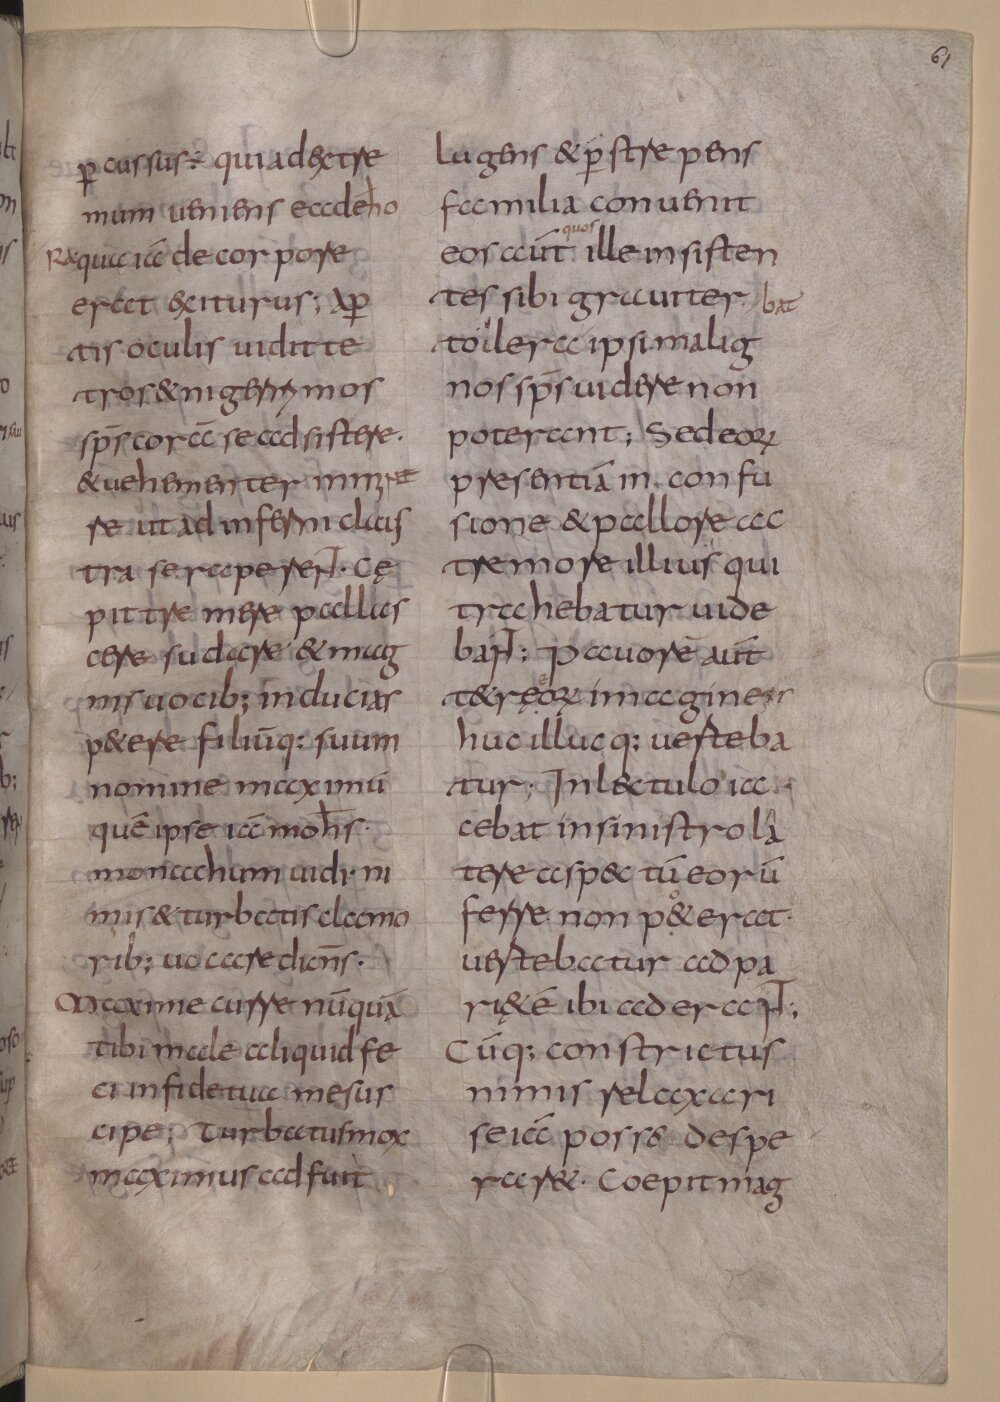 61
p̄cussus: quia ad extre
mum ueniens ad eho
ra qua iā de corpore
erat exiturus; Ap̄
tis oculis uidit te
tros & nigerrimos
sp̄s corā se adsistere.
& uehementer imminere
re ut ad inferni claus
tra se raperer̄. Cę
pit tremere palles
cere sudare & mag
nis uocib; inducias
p&ere filiūq: suum
nomine maximū
quē ipse iā mohs.
monachum uidi. ni
mis & turbatis clamo
rib; uocare dicn̄s.
Maxime curre nūquā
tibi male aliquid fe
ci in fide tua me sus
cipe; Turbatus mox
maximus adfuit
lugens & p̄strepens
familia conuenit
eos aūt quos ille insisten
tes sibi grauiter bat
toilera ipsi malig
nos sp̄s uidere non
poterant; Sed eoꝝ
presentiā in confu
sione & pallore ac
tremore illius qui
trahebatur uide
bar̄; Pauore aūt
t&rę eoꝝ imagines
huc illucq: uerteba
tur; In lectulo ia
cebat in sinistro lā
tere aspec tū eorū
ferre non p&erat.
uertebatur ad pa
ri&ē ibi adera r̄;
Cūq: constrictus
nimis relaxari
se iā posse despe
rar&. Coepit mag